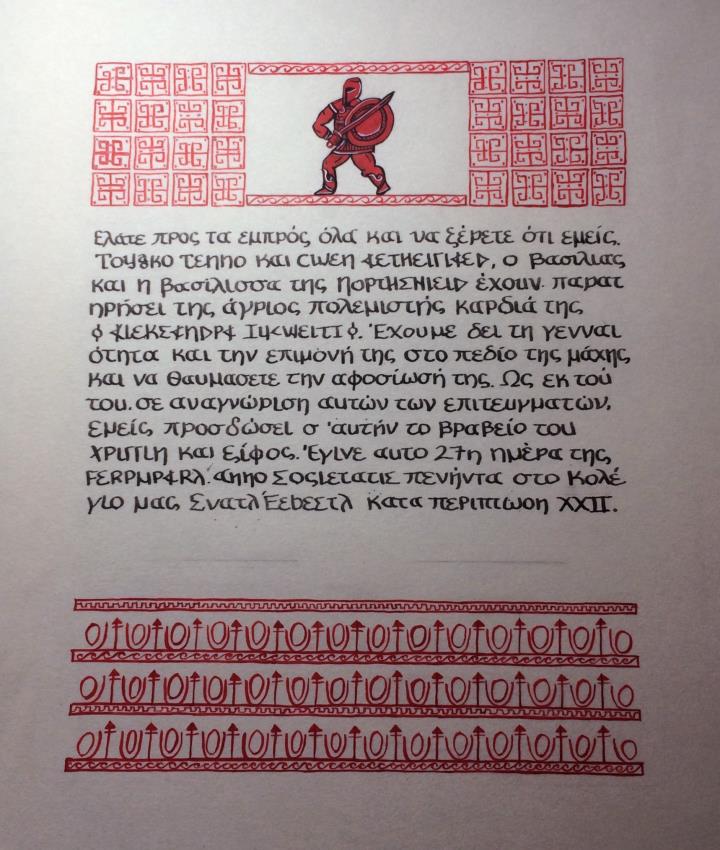 Ελατε προς τα εμπρός όλα και να ξέρετε ότι εμείς.
Τογβκο Τεппο και Cωεп ΑΕΤΗΕΙΓΙΑΕD, ο βασίλιας
και η βασίλισσα της ΠΟΡΤΗΣΗΙΕΙD έχουν. παρατ
ηρήσει της άγριος πολεμιστής καρδιά της
Έχουμε δει τη γενναι
ότητα και την επιμονή της στο πεδίο της μάχης,
και να θαυμασετε την αφοσίωσή της. Ως εκ τού
του. σε αναγνώριση αυτών των επιτευγματών,
εμείς προσδώσει σ 'αυτήν το βραβείο του
και ξίφος. Έγινε αυτο 27η ημέρα της
πενήντα στο Κολέ
γιο μας κατα περιπτωση XXII.